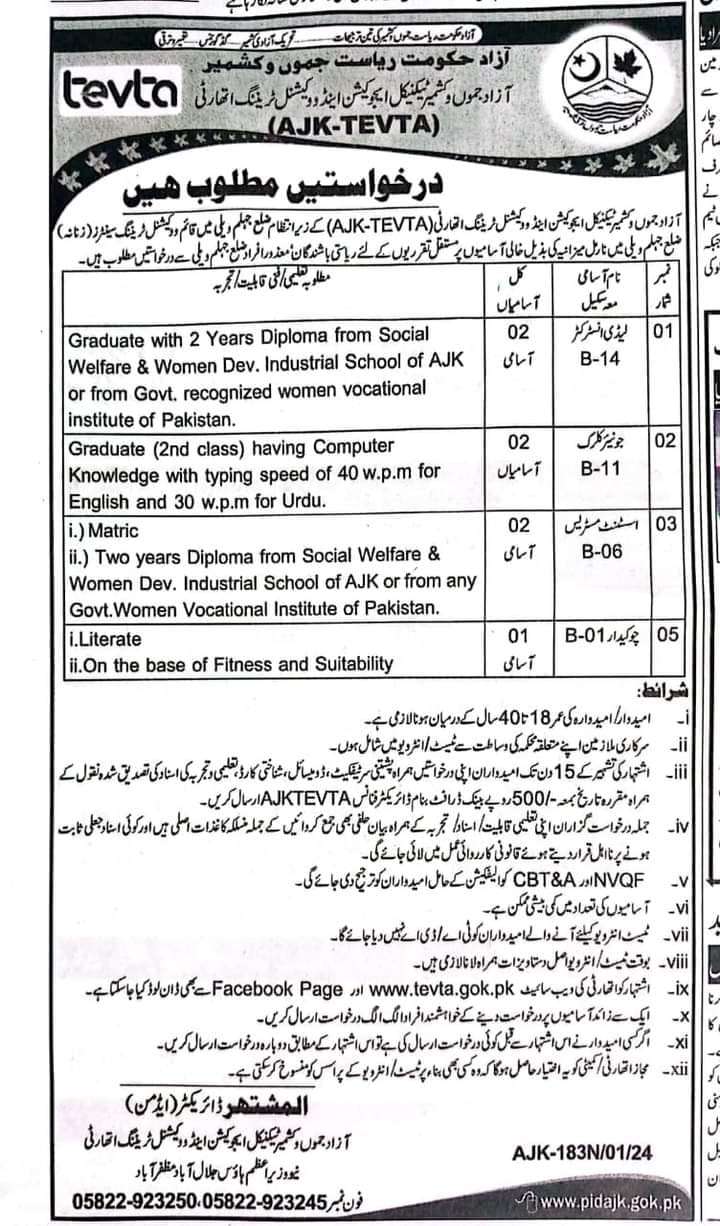 آزاد حکومت ریاست جموں و کشمیر کی تین ترجیحات تحریک آزادی کشمیر گڈ گورننس تعمیر و ترقی
tevta
آزاد حکومت ریاست جموں و کشمیر
آزاد جموں و کشمیر ٹیکنیکل ایجوکیشن اینڈ ووکیشنل ٹریننگ اتھارٹی
(AJK-TEVTA)
درخواستیں مطلوب ھیں
آزاد جموں و کشمیر ٹیکنیکل ایجوکیشن اینڈ ووکیشنل ٹریننگ اتھارٹی (AJK-TEVTA) کے زیر انتظام ضلع جہلم ویلی میں قائم ووکیشنل ٹریننگ سینٹرز (زنانہ)
ضلع جہلم ویلی میں نارمل میزانیہ کی بذیل خالی آسامیوں پر مستقل تقرریوں کے لئے ریاستی باشندگان/معذور افراد ضلع جہلم ویلی سے درخواستیں مطلوب ہیں۔
نمبر شمار نام آسامی معہ سکیل کل آسامیاں مطلوبہ تعلیمی/فنی قابلیت/تجربہ
01 لیڈی انسٹرکٹر B-14 02 آسامی
Graduate with 2 Years Diploma from Social
Welfare & Women Dev. Industrial School of AJK
or from Govt. recognized women vocational
institute of Pakistan.
02 جونیئر کلرک B-11 02 آسامیاں
Graduate (2nd class) having Computer
Knowledge with typing speed of 40 w.p.m for
English and 30 w.p.m for Urdu.
03 اسسٹنٹ مسٹریس B-06 02 آسامی
i.) Matric
ii.) Two years Diploma from Social Welfare &
Women Dev. Industrial School of AJK or from any
Govt.Women Vocational Institute of Pakistan.
05 چوکیدار B-01 01 آسامی
i.Literate
ii.On the base of Fitness and Suitability
شرائط:
i۔ امیدوار/امیدوارہ کی عمر 18 تا 40 سال کے درمیان ہونا لازمی ہے۔
ii۔ سرکاری ملازمین اپنے متعلقہ محکمہ کی وساطت سے ٹیسٹ/انٹرویو میں شامل ہوں۔
iii۔ اشتہار کی تشہیر کے 15 دن تک امیدواران اپنی درخواستیں ہمراہ پشتنی سرٹیفکیٹ، ڈومیسائل، شناختی کارڈ، تعلیمی و تجربہ کی اسناد کی تصدیق شدہ نقول کے
ہمراہ مقررہ تاریخ بمعہ -/500 روپے بینک ڈرافٹ بنام ڈائریکٹر فنانس AJKTEVTA ارسال کریں۔
iv۔ جملہ درخواست گزاران اپنی تعلیمی قابلیت/اسناد/تجربہ کے ہمراہ بیان حلفی بھی جمع کروائیں گے کہ جملہ منسلکہ کاغذات اصلی ہیں اور کوئی اسناد جعلی ثابت
ہونے پر نااہل قرار دیتے ہوئے قانونی کارروائی عمل میں لائی جائے گی۔
v۔ NVQF اور CBT&A کوالیفکیشن کے حامل امیدواران کو ترجیح دی جائے گی۔
vi۔ آسامیوں کی تعداد میں کمی بیشی ممکن ہے۔
vii۔ ٹیسٹ انٹرویو کیلئے آنے والے امیدواران کو ٹی اے/ڈی اے نہیں دیا جائے گا۔
viii۔ بوقت ٹیسٹ/انٹرویو اصل دستاویزات ہمراہ لانا لازمی ہیں۔
ix۔ اشتہار کو اتھارٹی کی ویب سائیٹ www.tevta.gok.pk اور Facebook Page سے بھی ڈاؤن لوڈ کیا جا سکتا ہے۔
x۔ ایک سے زائد آسامیوں پر درخواست دینے کے خواہشمند افراد الگ الگ درخواست ارسال کریں۔
xi۔ اگر کسی امیدوار نے اس اشتہار سے قبل کوئی درخواست ارسال کی ہے تو اس اشتہار کے مطابق دوبارہ درخواست ارسال کریں۔
xii۔ مجاز اتھارٹی/کمیٹی کو یہ اختیار حاصل ہو گا کہ وہ کسی بھی بناء پر ٹیسٹ/انٹرویو کے پراسس کو منسوخ کر سکتی ہے۔
المشتھر ڈائریکٹر (ایڈمن)
آزاد جموں و کشمیر ٹیکنیکل ایجوکیشن اینڈ ووکیشنل ٹریننگ اتھارٹی
نیو وزیراعظم ہاؤس جلال آباد مظفرآباد
فون نمبر 05822-923245، 05822-923250
AJK-183N/01/24
www.pidajk.gok.pk